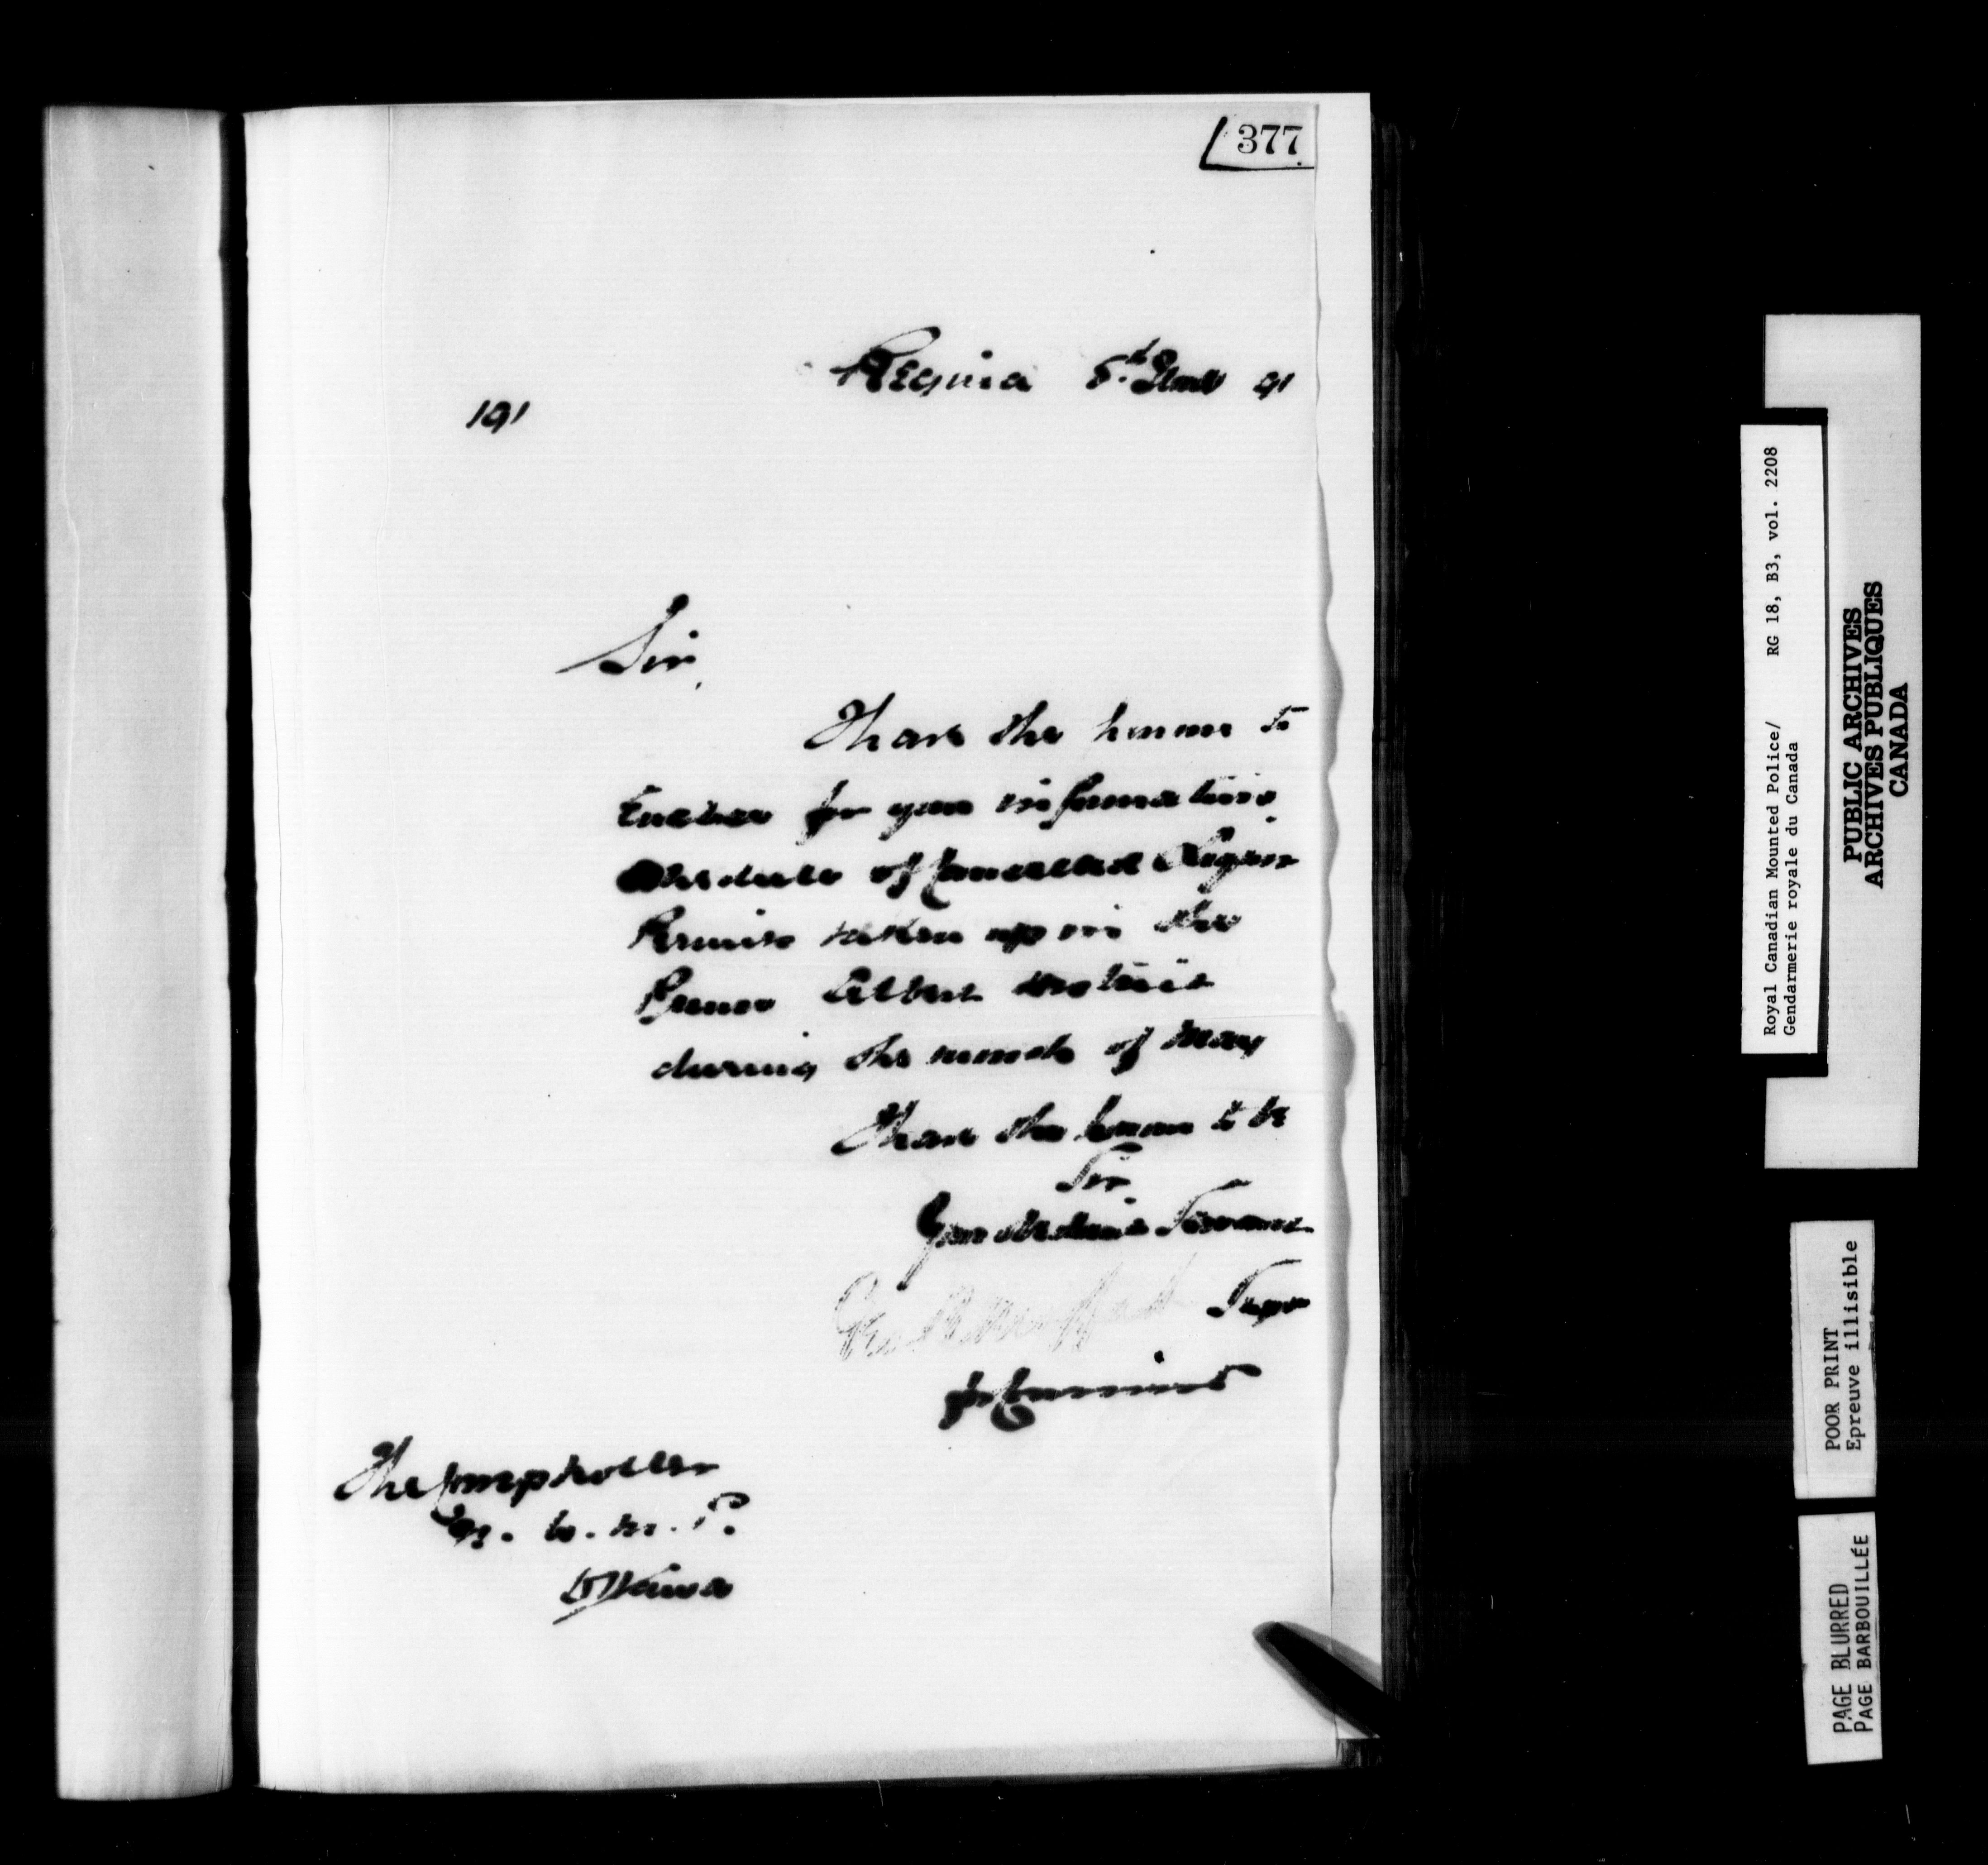 377
Regina 5th June 91
191
Sir,
I have the honour to
Enclose for your information,
Schedule of Cancelled Liquor
Permits taken up in the
Prince Albert District
during the month of May
I have the honour to be
Sir,
Your obedient Servant
Supt
for Commissr
The Comptroller
N. W. M. P.
Ottawa
Royal Canadian Mounted Police/ RG 18, B3, vol. 2208
Gendarmerie royale du Canada
PUBLIC ARCHIVES
ARCHIVES PUBLIQUES
CANADA
POOR PRINT
Epreuve illisible
PAGE BLURRED
PAGE BARBOUILLÉE